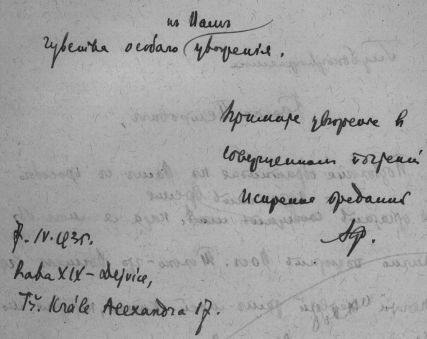 къ Вамъ
чувства особаго уваженія.
Примите уверение в
совершенном почтении
Искренне преданный
IV.1935.
Praha XIX – Dejvice,
Tř. Krále Alexandra 17.